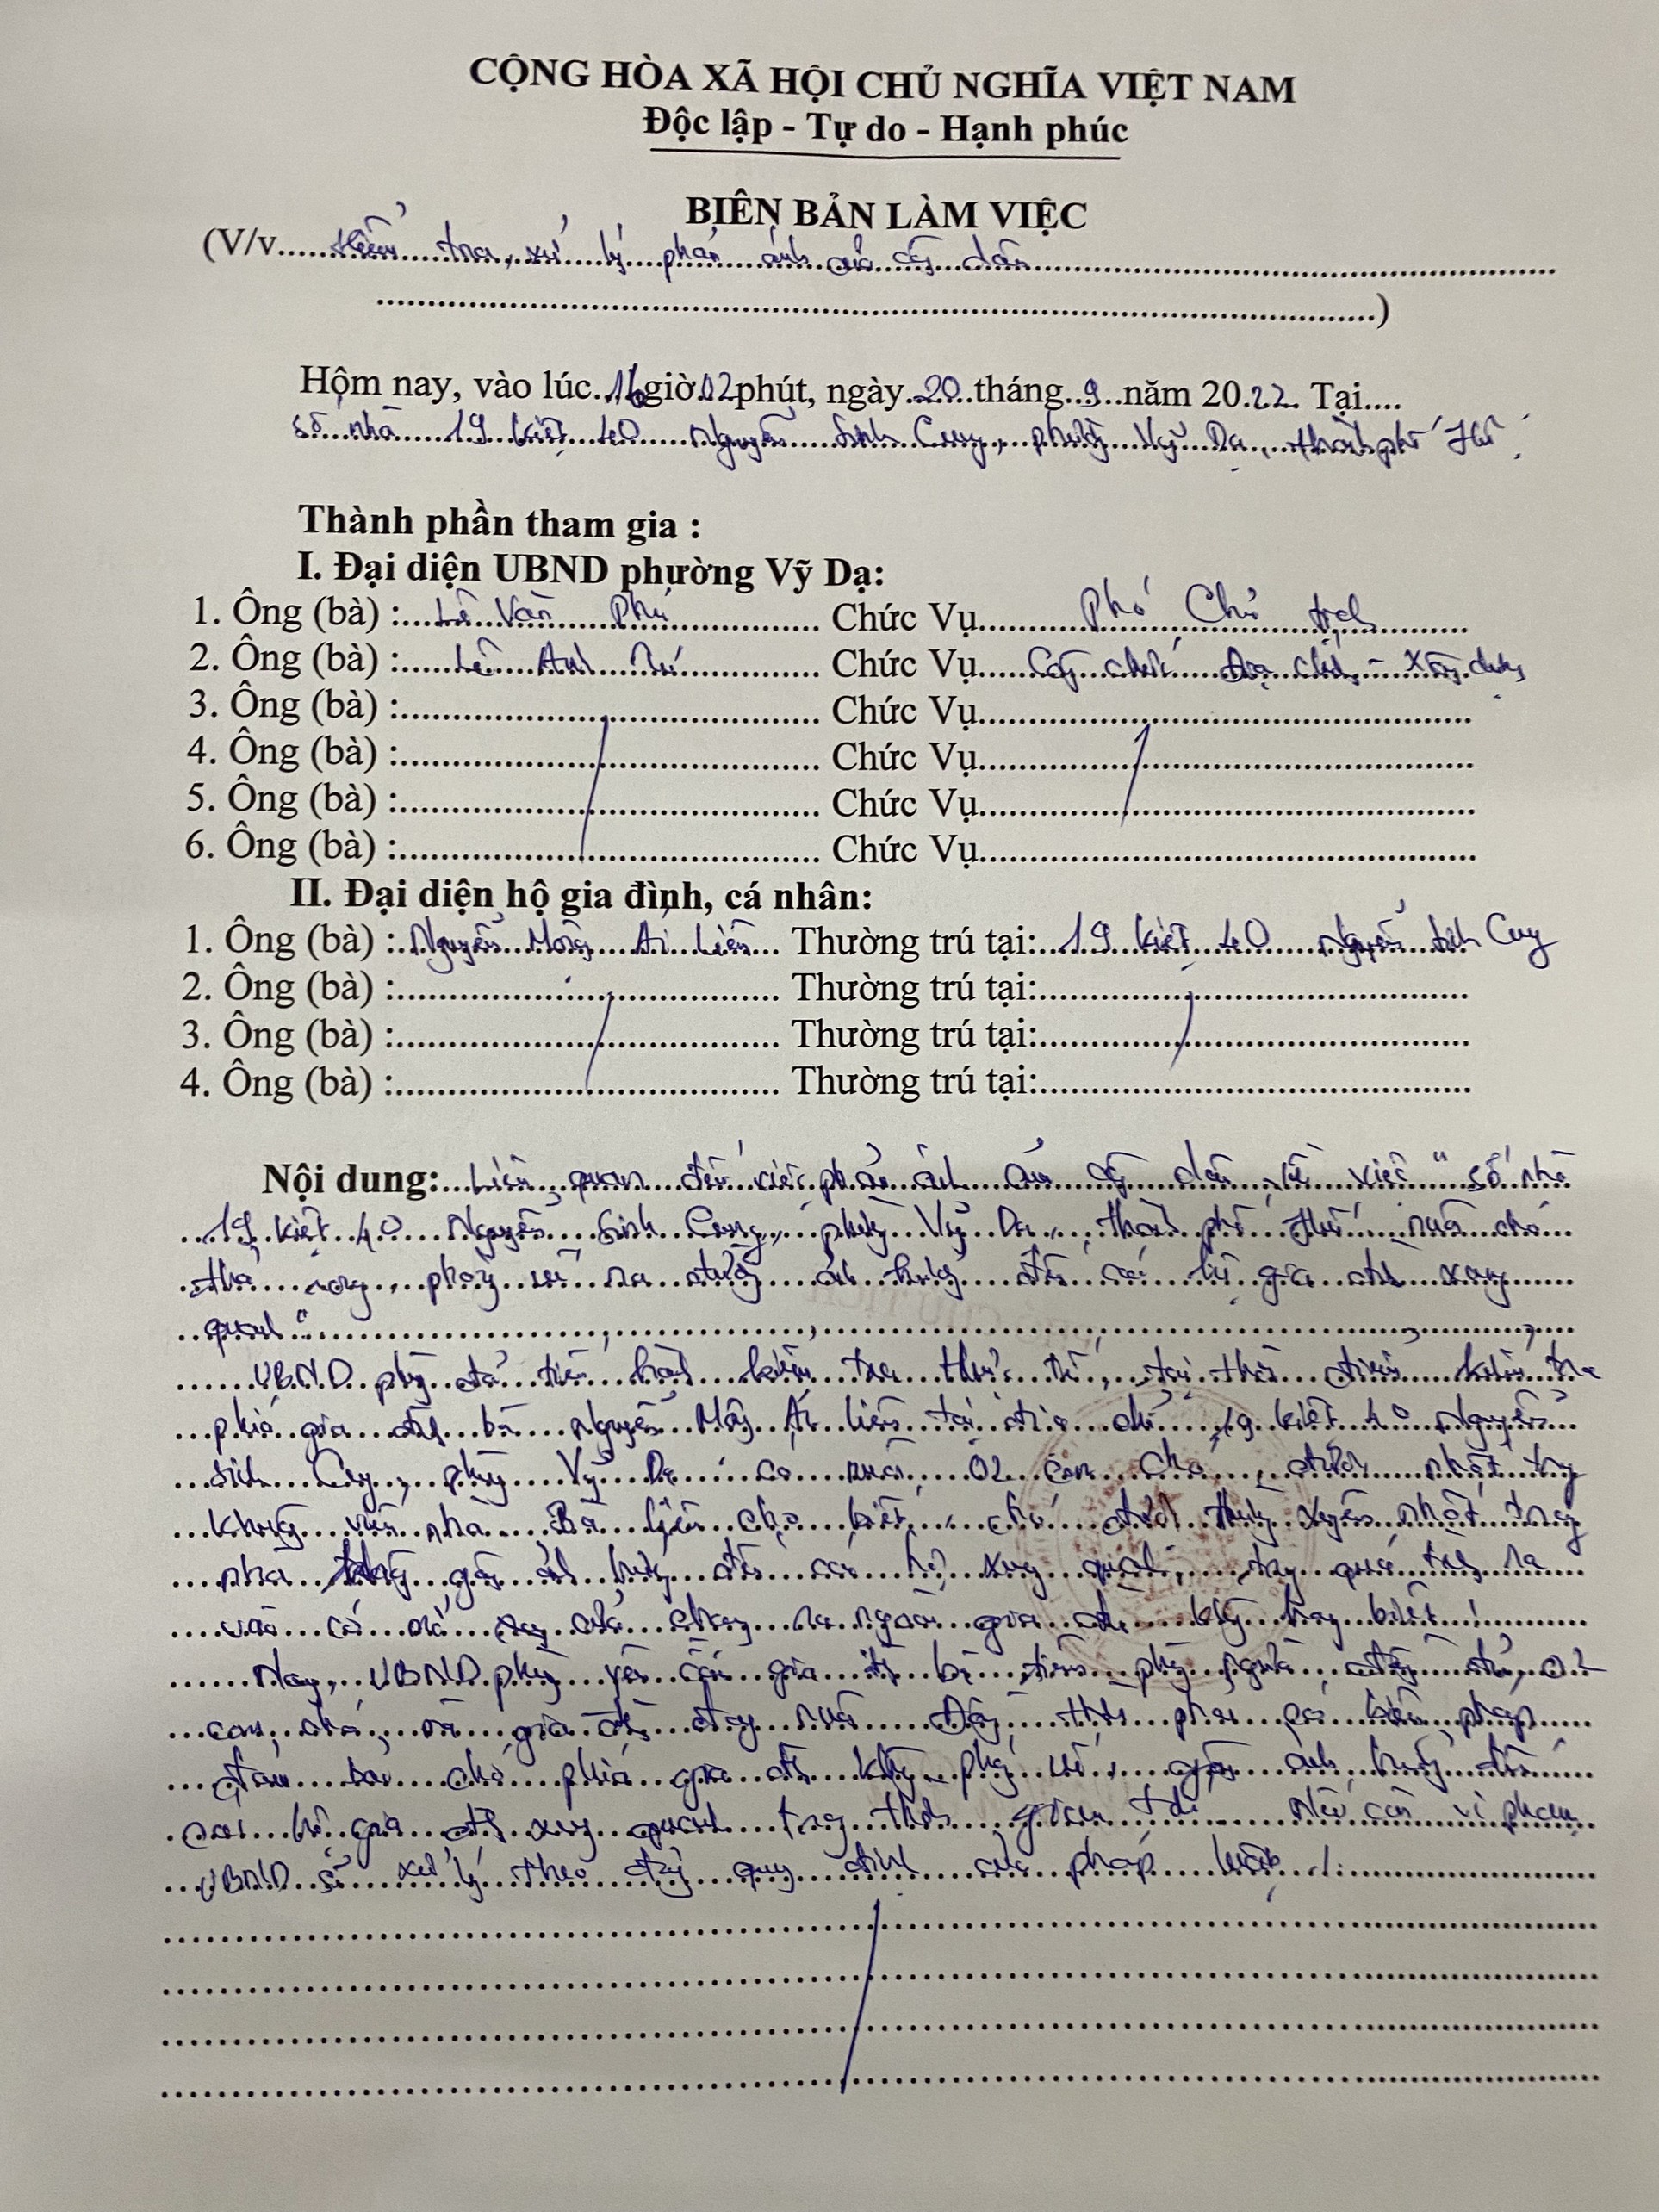 CỘNG HÒA XÃ HỘI CHỦ NGHĨA VIỆT NAM
Độc lập - Tự do - Hạnh phúc
BIÊN BẢN LÀM VIỆC
(V/v kiểm tra, xử lý phản ánh của công dân
)
Hôm nay, vào lúc 16 giờ 02 phút, ngày 20 tháng 9 năm 2022. Tại
số nhà 19 kiệt 40 Nguyễn Sinh Cung, phường Vỹ Dạ, thành phố Huế
Thành phần tham gia :
I. Đại diện UBND phường Vỹ Dạ:
1. Ông (bà) : Lê Văn Phú Chức Vụ Phó Chủ tịch
2. Ông (bà) : Lê Anh Tú Chức Vụ Công chức Địa chính - Xây dựng
3. Ông (bà) : Chức Vụ
4. Ông (bà) : Chức Vụ
5. Ông (bà) : Chức Vụ
6. Ông (bà) : Chức Vụ
II. Đại diện hộ gia đình, cá nhân:
1. Ông (bà) : Nguyễn Ái Liên Thường trú tại: 19 kiệt 40 Nguyễn Sinh Cung
2. Ông (bà) : Thường trú tại:
3. Ông (bà) : Thường trú tại:
4. Ông (bà) : Thường trú tại:
Nội dung: Liên quan đến việc phản ánh của công dân về việc "số nhà
19 kiệt 40 Nguyễn Sinh Cung, phường Vỹ Dạ, thành phố Huế nuôi chó
thả rong, phóng uế ra đường ảnh hưởng đến các hộ gia đình xung
quanh"
UBND phường đã tiến hành kiểm tra thực tế, tại thời điểm kiểm tra
phía gia đình bà Nguyễn Ái Liên tại địa chỉ 19 kiệt 40 Nguyễn
Sinh Cung, phường Vỹ Dạ có nuôi 02 con chó, được nhốt trong
khuông viên nhà. Bà Liên cho biết, chó được thường xuyên nhốt trong
nhà không gây ảnh hưởng đến các hộ xung quanh, trong quá trình ra
vào có chạy ra ngoài gia đình không hay biết!
Nay, UBND phường yêu cầu gia đình bà tiêm phòng ngừa đầy đủ 02
con chó mà gia đình đang nuôi. Đồng thời phải có biện pháp
đảm bảo chó phía gia đình không phóng uế, gây ảnh hưởng đến
các hộ gia đình xung quanh trong thời gian tới. Nếu còn vi phạm
UBND sẽ xử lý theo đúng quy định của pháp luật./.